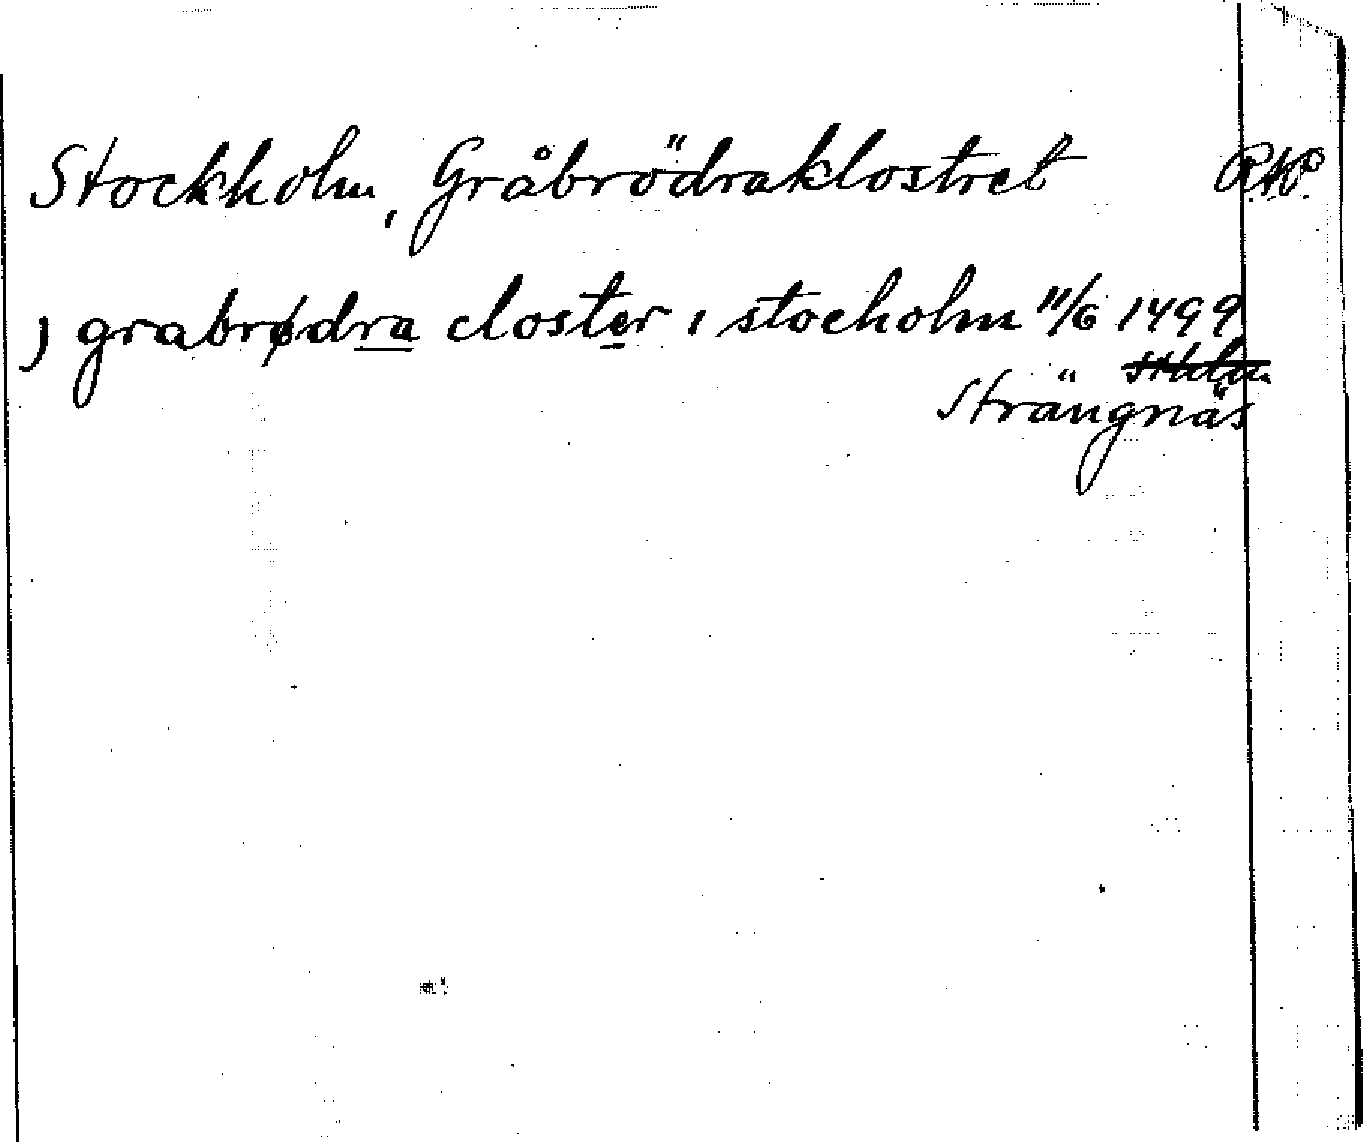 Stockholm, Gråbrödraklostret RAP.
j grabrødra closter i stocholm 11/6 1499
sthlm
Strängnäs